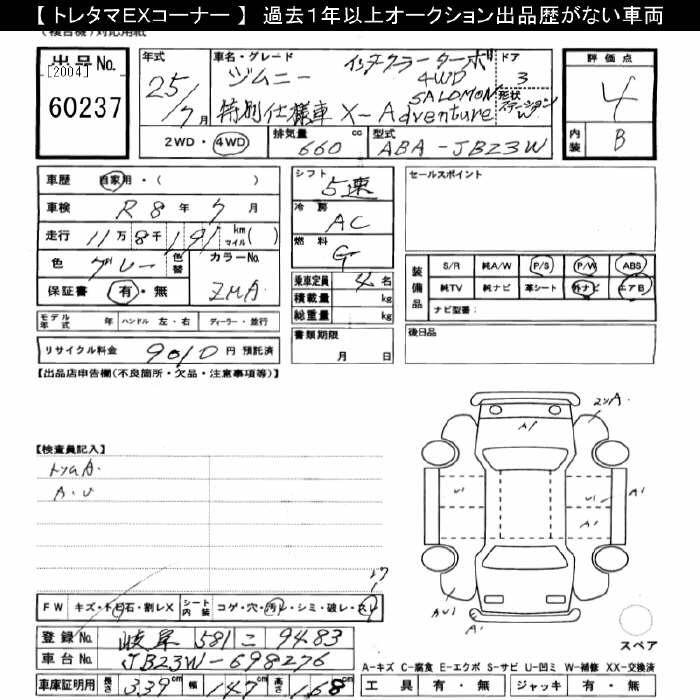 【 トレタマEXコーナー 】 過去１年以上オークション出品歴がない車両
出品No.
[2004]
60237
年式
25/7月
車名・グレード
ジムニー
インタークーラーターボ
4WD
SALOMON
特別仕様車 X-Adventure
ドア
3
形状
ステーションW
2WD・4WD
排気量
660 cc
型式
ABA-JB23W
評価点
4
内装
B
車歴 自家用・( )
車検 R 8 年 7 月
走行 11万8千191 km マイル( )
色 グレー 色替
カラーNo.
ZMA
保証書 有・無
シフト
5速
冷房
AC
燃料
G
乗車定員 4 名
積載量 kg
総重量 kg
書類期限
月 日
セールスポイント
装備品
S/R 純A/W P/S P/W ABS
純TV 純ナビ 革シート 外ナビ エアB
ナビ型番:
後日品
モデル年式 年 ハンドル 左・右 ディーラー・並行
リサイクル料金 9010 円 預託済
【出品店申告欄(不良箇所・欠品・注意事項等)】
【検査員記入】
A.U
A1
U1
U1
A1
A1
AU1
A1
FW キズ・トビ石・割レX シート内装 コゲ・穴・汚レ・シミ・破レ・スレ
登録No. 岐阜 581 こ 9483
車台No. JB23W-698276
車庫証明用 長さ 339 cm 幅 147 cm 高さ 168 cm
スペア
A─キズ C─腐食 E─エクボ S─サビ U─凹ミ W─補修 XX─交換済
工具 有・無 ジャッキ 有・無